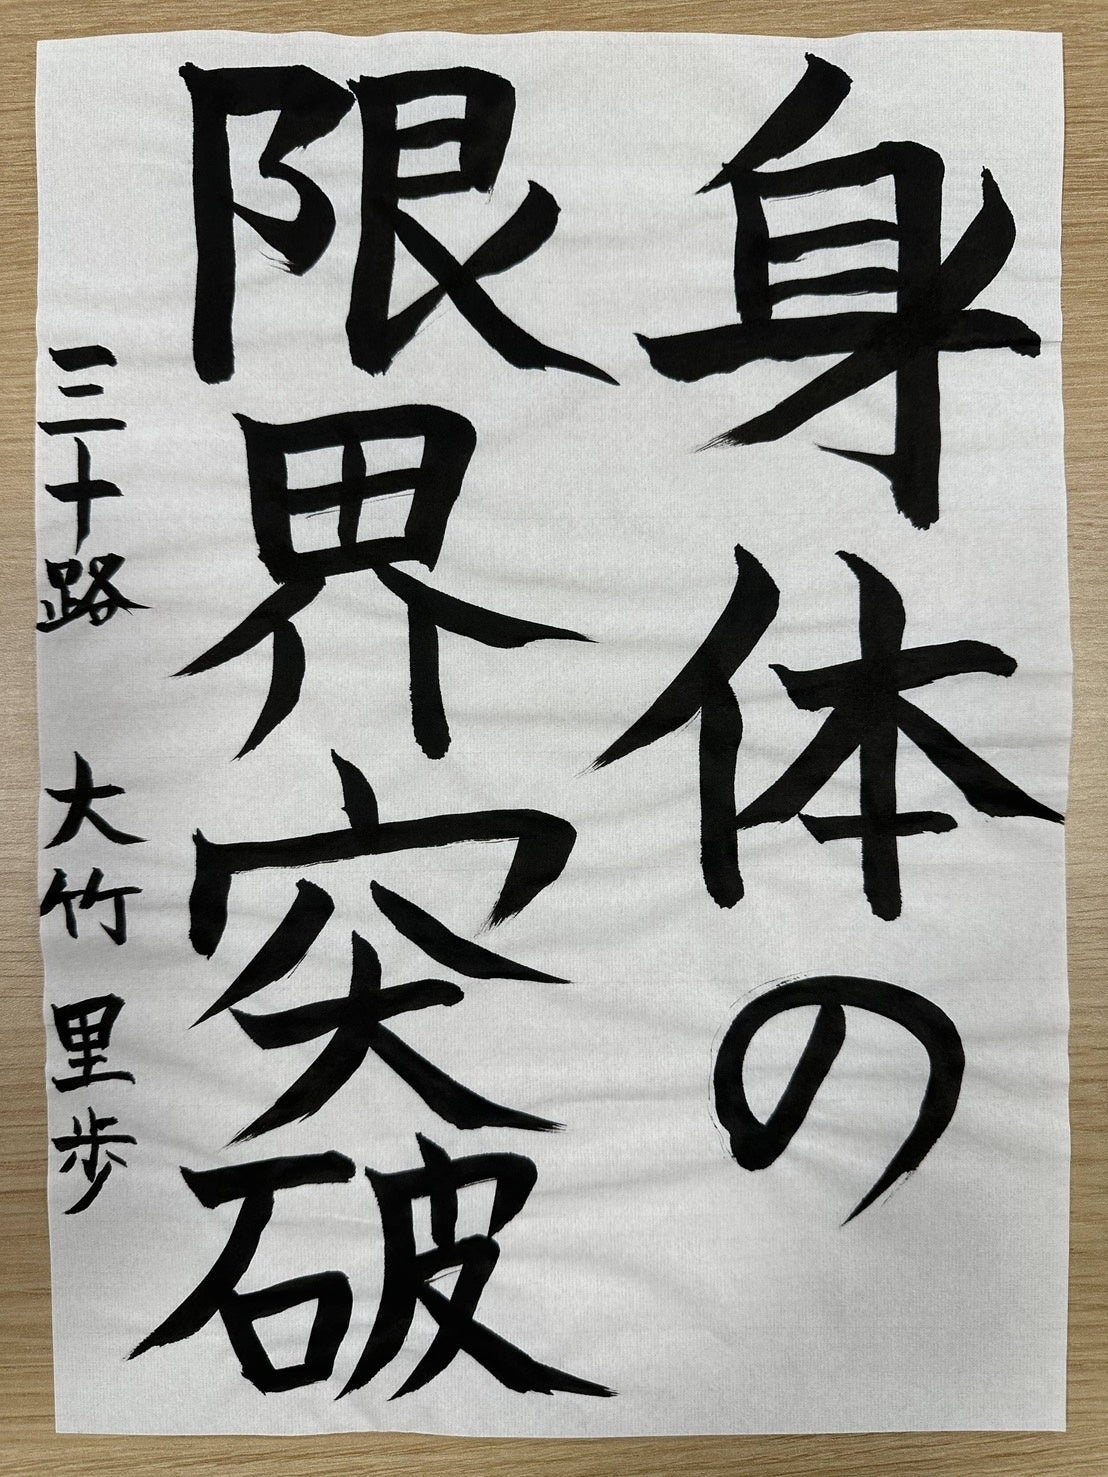 身体の
限界突破
三十路 大竹里歩